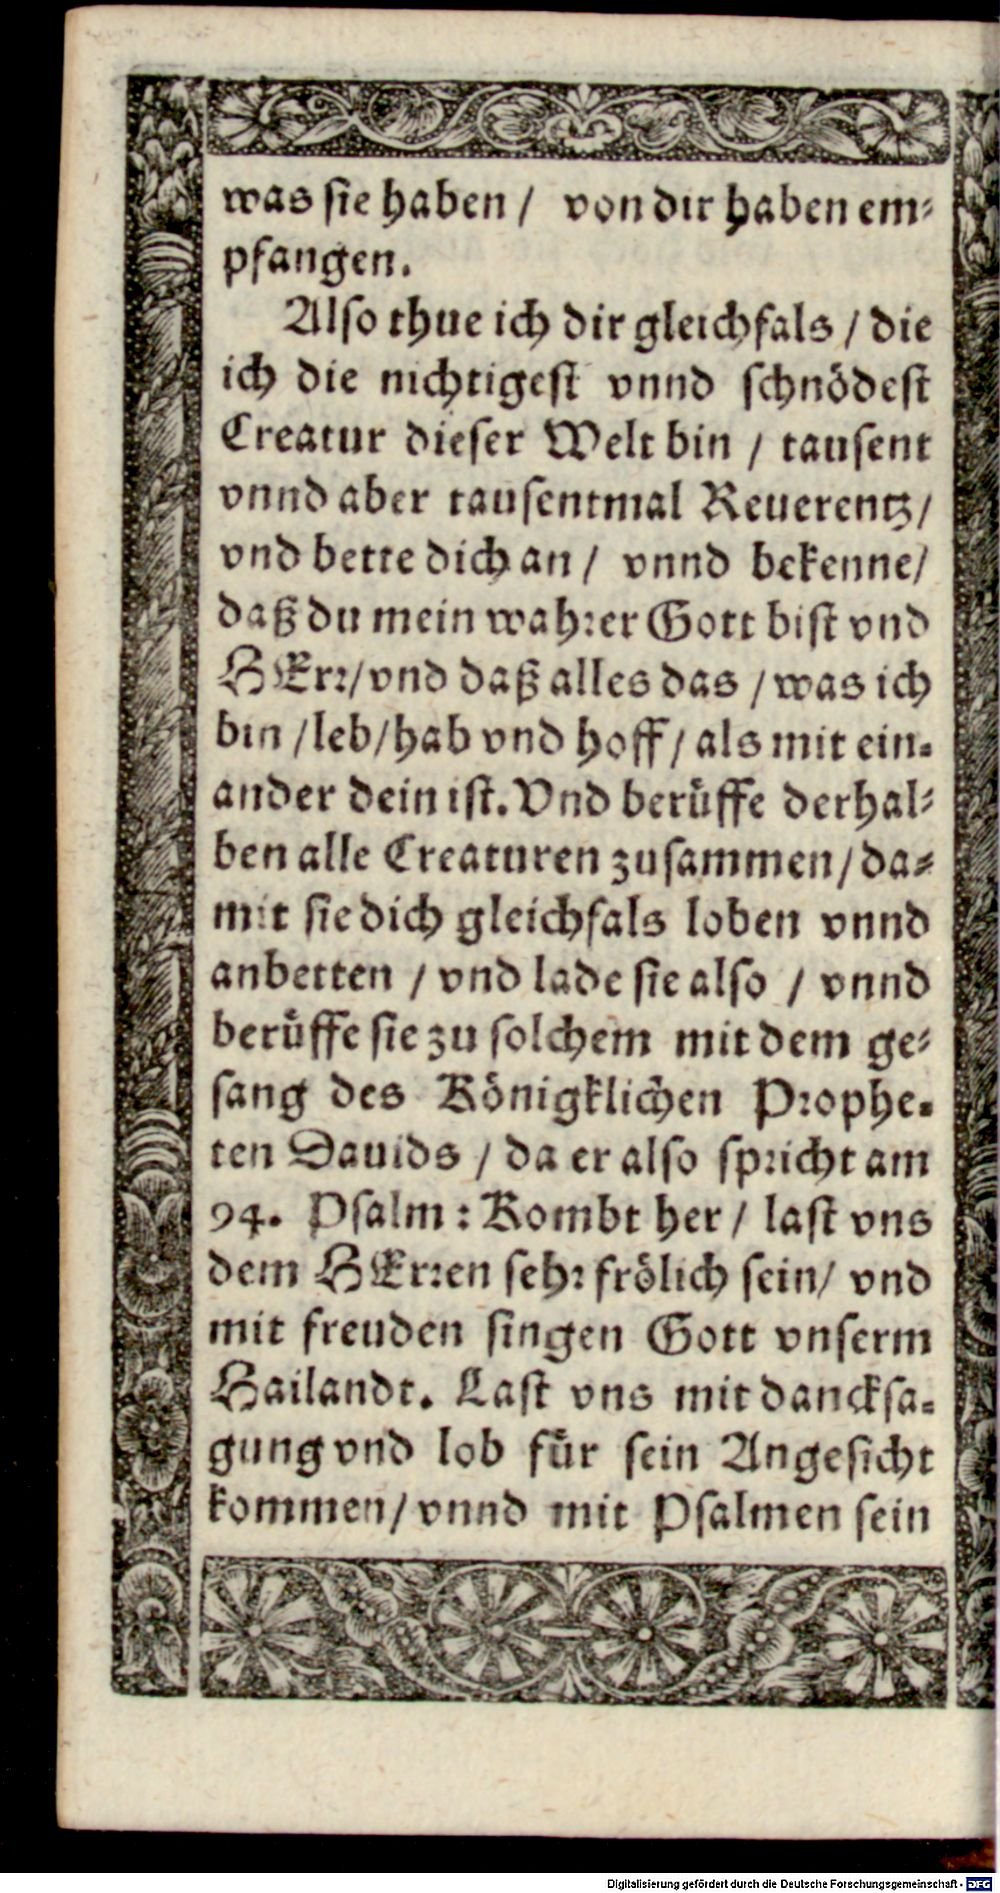 was sie haben / von dir haben em-
pfangen.
Also thue ich dir gleichfals / die
ich die nichtigest vnnd schnödest
Creatur dieser Welt bin / tausent
vnnd aber tausentmal Reuerentz /
vnd bette dich an / vnnd bekenne /
daß du mein wahrer Gott bist vnd
HErr / vnd daß alles das / was ich
bin / leb / hab vnd hoff / als mit ein-
ander dein ist. Vnd berüffe derhal-
ben alle Creaturen zusammen / da-
mit sie dich gleichfals loben vnnd
anbetten / vnd lade sie also / vnnd
berüffe sie zu solchem mit dem ge-
sang des Königklichen Prophe-
ten Dauids / da er also spricht am
94. Psalm : Kombt her / last vns
dem HErren sehr frölich sein / vnd
mit freuden singen Gott vnserm
Hailandt. Last vns mit dancksa-
gung vnd lob für sein Angesicht
kommen / vnnd mit Psalmen sein
Digitalisierung gefördert durch die Deutsche Forschungsgemeinschaft - DFG